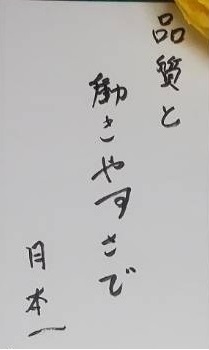 品質と
働きやすさで
日本一